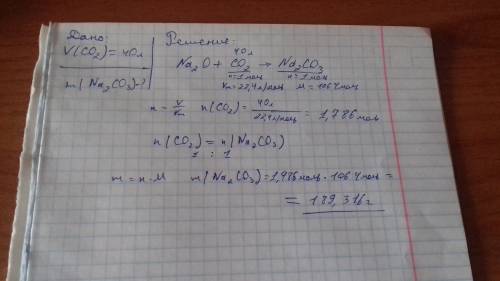 Дано:
V(CO₂)=40л
m(Na₂CO₃)-?
Решение:
40л
Na₂O + CO₂ → Na₂CO₃
n=1моль n=1моль
Vm=22,4л/моль M=106г/моль
n = V/Vm n(CO₂) = 40л/22,4л/моль = 1,786моль
n(CO₂) = n(Na₂CO₃)
1 : 1
m = n·M m(Na₂CO₃)=1,786моль · 106г/моль =
= 189,316г